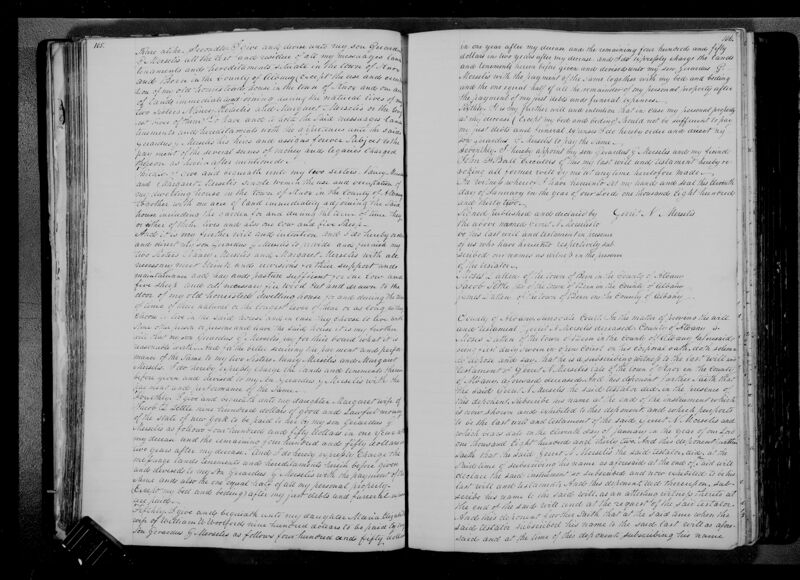 105.
Share alike. Secondly I give and devise unto my son Gerardus
G Merselis all the rest and residue of all my messuages land
tenements and hereditaments situate in the town of Knox
and Bern in the County of Albany (except the use and occupa
tion of my old homestead house in the town of Knox and one acre
of land immediately adjoining during the natural lives of my
two sisters Nancy Merselis and Margaret Merselis or the long
est liver of them) To have and to hold the said messuages land
tenements and hereditaments with the appurtenances unto the said
Gerardus G Merselis his heirs and assigns forever Subject to the
payment of the several sums of money and legacies charged
thereon as herein after mentioned
Thirdly I give and bequeath unto my two sisters Nancy Merselis
and Margaret Merselis single women the use and occupation of
my dwelling house in the town of Knox in the County of Albany
together with one acre of land immediately adjoining the said
house including the garden for and during the term of time they
or either of them lives and also one cow and five sheep
And it is my further will and intention and I do hereby order
and direct my son Gerardus G Merselis to provide and furnish my
two sisters Nancy Merselis and Margaret Merselis with all
necessary meat drink and provisions for their support and
maintainance and hay and pasture sufficient for one Cow and
five sheep and all necessary fire wood cut and drawn to the
door of my old homestead dwelling house for and during the term
of time of their natural or the longest liver of them or as long as they
choose to live in the said house and in case they choose to live with
some other person or persons and leave the said house it is my further
will that my son Gerardus G Merselis pay for their board what it is
reasonable worth. And to the better securing the payment and perfor
mance of the same to my two sisters Nancy Merselis and Margaret
Merselis. I do hereby expressly charge the lands and tenements herein
before given and devised to my son Gerardus G Merselis with the
payment and performance of the same.
Fourthly I give and bequeath unto my daughter Margaret wife of
Jacob Settle nine hundred dollars of good and Lawful money
of the state of new York to be paid to her by my son Gerardus G
Merselis as follows four hundred and fifty dollars in one year after
my decease and the remaining four hundred and fifty dollars in
two years after my decease. And I do hereby expressly Charge the
messuage lands tenements and hereditaments herein before given
and devised to my son Gerardus G Merselis with the payment of the
same and also the one equal half of all my personal property.
Except my bed and beding after my just debts and funeral expenses
are paid.
Fifthly I give and bequeath unto my daughter Maria
wife of William W nine hundred dollars to be paid by my
son Gerardus G Merselis as follows four hundred and fifty dollars
106.
in one year after my decease and the remaining four hundred and fifty
dollars in two years after my decease, and I do expressly charge the lands
and tenements herein before given and devised unto my son Gerardus G
Merselis with the payment of the same together with my bed and beding
and the one equal half of all the remainder of my personal property after
the payment of my just debts and funeral expenses.
Sixthly. It is my further will and intention that in case my personal property
at my decease (Except my bed and beding) should not be sufficient to pay
my just debts and funeral expenses I do hereby order and direct my
son Gerardus G Merselis to pay the same.
Seventhly I hereby appoint my son Gerardus G Merselis and my friend
John H Ball Executors of this my last will and testament hereby re
voking all former wills by me at any time heretofore made.
In witness whereof I have hereunto set my hand and seal the eleventh
day of January in the year of our Lord one thousand eight hundred
and thirty two.
Signed published and declared by Gerrit N. Merselis
the above named Gerrit N. Merselis to
be his last will and testament in presence
of us who have hereunto respectively sub
scribed our names as witnesses in the presence
of the testator.
Moses Patten of the town of Bern in the County of Albany
Jacob Settle of the town of Bern in the County of Albany
James Patten of the town of Bern in the County of Albany
County of Albany, Surrogate Court. In the matter of proving the will
and testament of Gerrit N. Merselis deceased. County of Albany ss
Moses Patten of the town of Bern in the County of Albany aforesaid
being duly sworn in open Court on his corporal oath doth
depose and say that he is a subscribing witness to the last will and
testament of Gerrit N. Merselis late of the town of Knox in the County
of Albany aforesaid deceased. And this deponent further saith that
the said Gerrit N. Merselis the said testator did, in the presence of
this deponent subscribe his name at the end of the instrument which
is now shown and exhibited to this deponent, and which purports
to be the last will and testament of the said Gerrit N. Merselis and
which bears date on the eleventh day of January in the year of our Lord
one thousand Eight hundred and thirty two. And this deponent further
saith that the said Gerrit N. Merselis the said testator, did, at the
said time of subscribing his name as aforesaid at the end of said will
declare the said instrument so subscribed and now exhibited, to be his
last will and testament. And this deponent did thereupon, sub
scribe his name to the said will, as an attesting witness thereto at
the end of the said will and at the request of the said testator.
And this deponent further saith that at the said time when the
said testator subscribed his name to the said last will as afore
said and at the time of this deponents subscribing his name